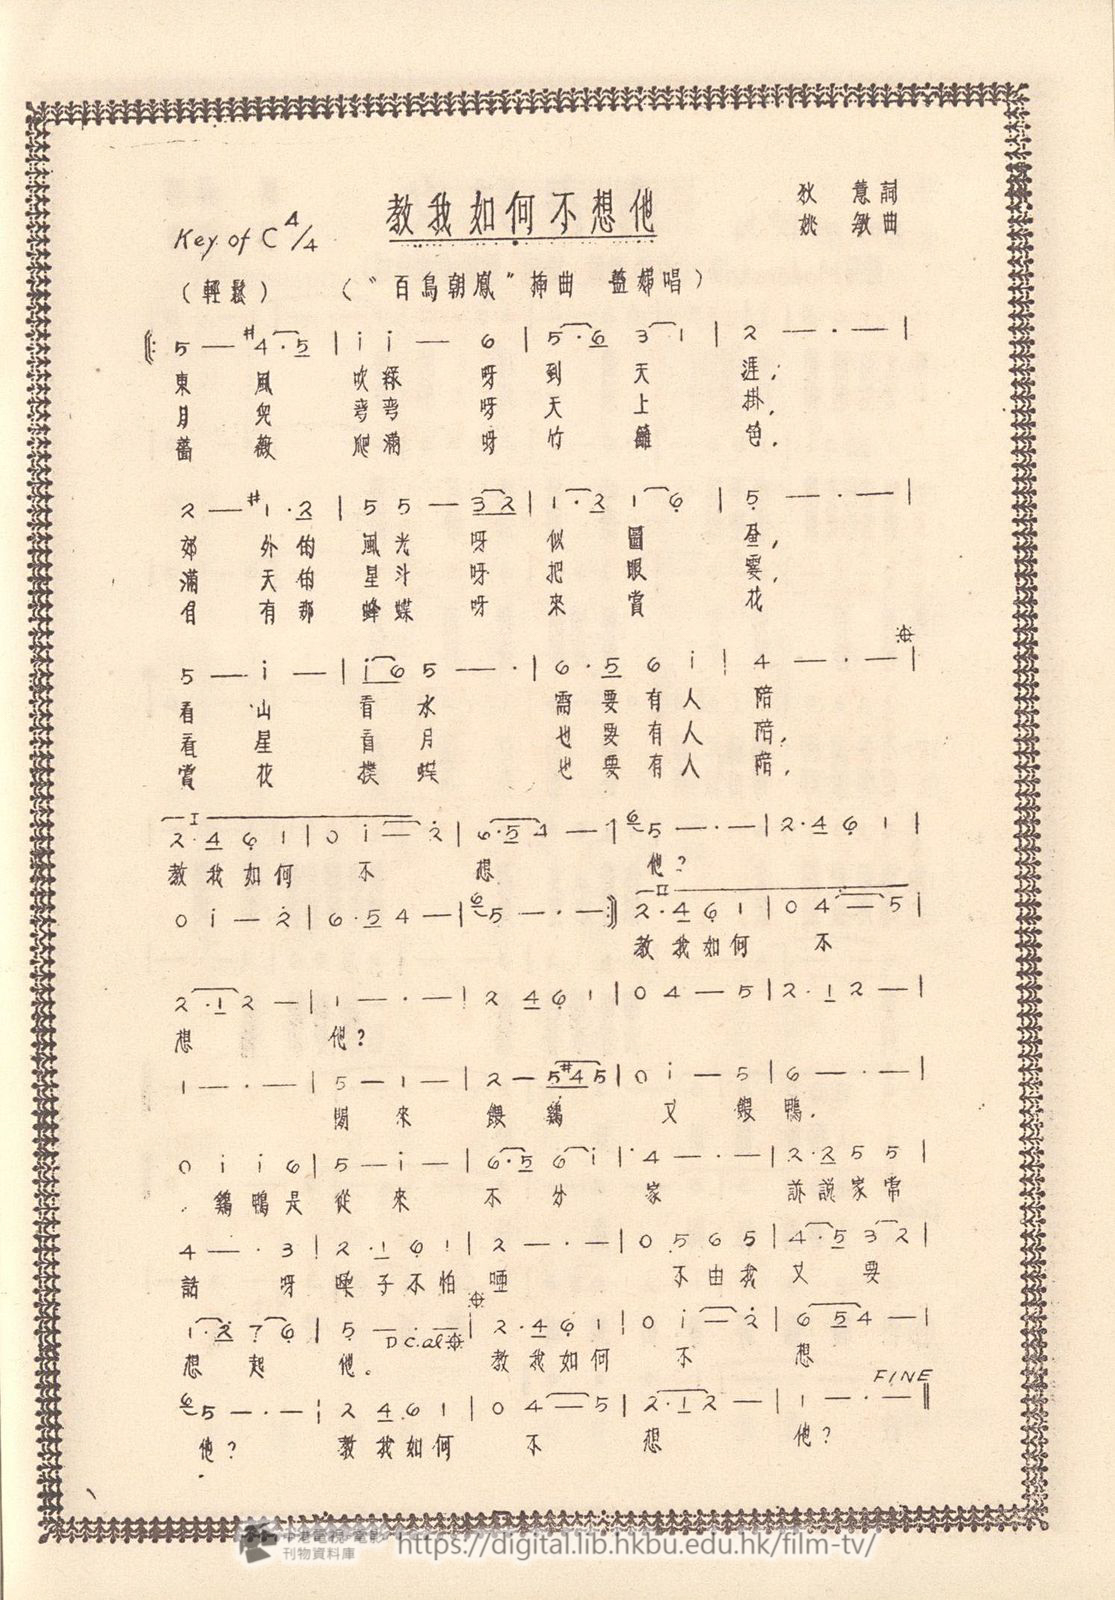 教我如何不想他
狄慧詞
姚敏曲
Key of C 4/4
(輕鬆)
("百鳥朝鳳"插曲 唱)
5 — #4·5 | i i — 6 | 5·6 3·1 | 2 — · — |
東風吹綠呀到天涯,
月兒彎彎呀天上掛,
薔薇爬滿呀竹籬笆,
2 — #1·2 | 5 5 — 3 2 | 1·2 1 6 | 5 — · — |
郊外的風光呀似圖畫,
滿天的星斗呀把眼霎,
自有那蜂蝶呀來賞花
5 — i — | i 6 5 — · | 6·5 6 i | 4 — · — |
看山看水需要有人陪
看星看月也要有人陪,
賞花撲蝶也要有人陪,
I
2·4 6 1 | 0 i — 2 | 6·5 4 — | 6 5 — · — | 2·4 6 1 |
教我如何不想他?
II
0 i — 2 | 6·5 4 — | 6 5 — · — :| 2·4 6 1 | 0 4 — 5 |
教我如何不
2·1 2 — | 1 — · — | 2 4 6 1 | 0 4 — 5 | 2·1 2 — |
想他?
1 — · — | 5 — 1 — | 2 — 5 #4 5 | 0 i — 5 | 6 — · — |
閒來餵鷄又餵鴨,
0 i i 6 | 5 — i — | 6·5 6 i | 4 — · — | 2·2 5 5 |
鷄鴨是從來不分家訴說家常
4 — · 3 | 2·1 6 1 | 2 — · — | 0 5 6 5 | 4·5 3 2 |
話呀嗓子不怕啞不由我又要
1·2 7 6 | 5 — · — | 2·4 6 1 | 0 i — 2 | 6 5 4 — |
D.C. al
想起他。教我如何不想
FINE
6 5 — · — | 2 4 6 1 | 0 4 — 5 | 2·1 2 — | 1 — · — ||
他?教我如何不想他?
香港電視·電影
刊物資料庫
https://digital.lib.hkbu.edu.hk/film-tv/